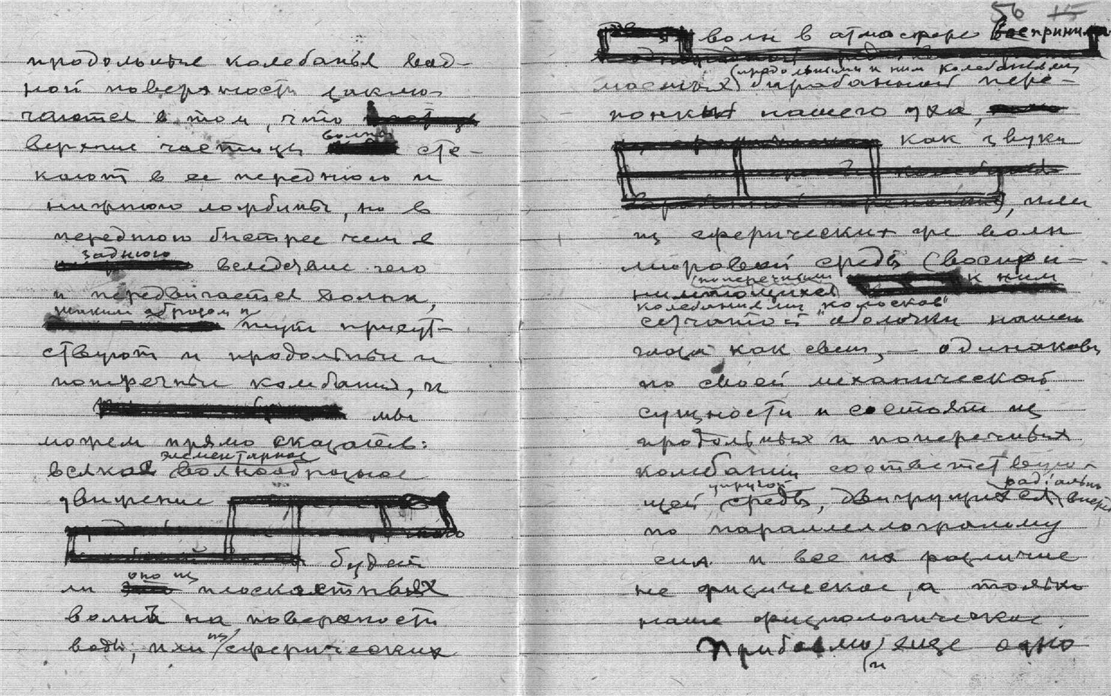 продольныя колебанья вод-
ной поверхности заклю-
чаются в том, что
верхние частицы волны сте-
кают в ее переднюю и
нижнюю ложбины, но в
переднюю быстрее чем в
заднюю вследствие чего
и передвигается волна,
таким образом и
тут присут-
ствуют и продольныя и
поперечныя колебания, и
мы
можем прямо сказать:
всякое элементарное волнообразное
движение
будет
ли оно из плоскостных
волн на поверхности
воды, или из сферических
56 15
волн в атмосфере восприним
продольными к ним колебаньями
барабанной пере-
понки нашего уха,
как звуки
, или
из сферических же волн
мировой среды (воспри-
нимающихся поперечными к ним
колебаниями "колосков"
сетчатой оболочки нашего
глаза как свет, — одинаковы
по своей механической
сущности и состоят из
продольных и поперечных
колебаний соответствую-
щей упругой среды, движущихся радіально
по параллелограмму
сил и все их различие
не физическое, а только
наше физиологическое.
Прибавлю и еще одно